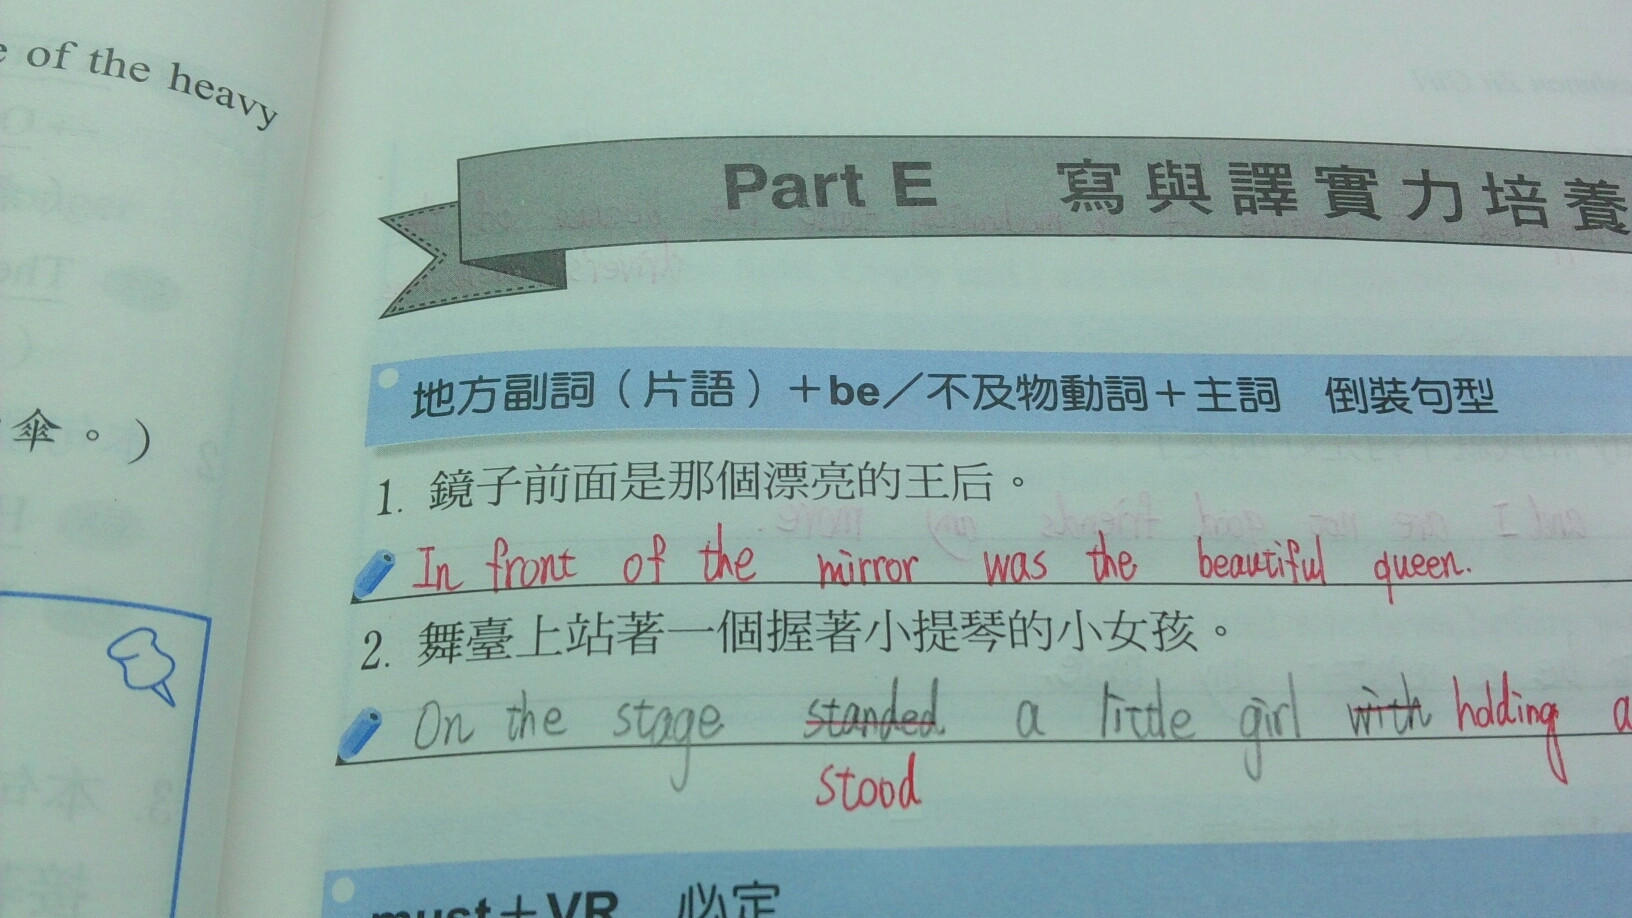 of the heavy
傘。）
Part E 寫與譯實力培養
地方副詞（片語）＋be／不及物動詞＋主詞 倒裝句型
1. 鏡子前面是那個漂亮的王后。
In front of the mirror was the beautiful queen.
2. 舞臺上站著一個握著小提琴的小女孩。
On the stage standed a little girl with holding a
stood
must＋VR 必定